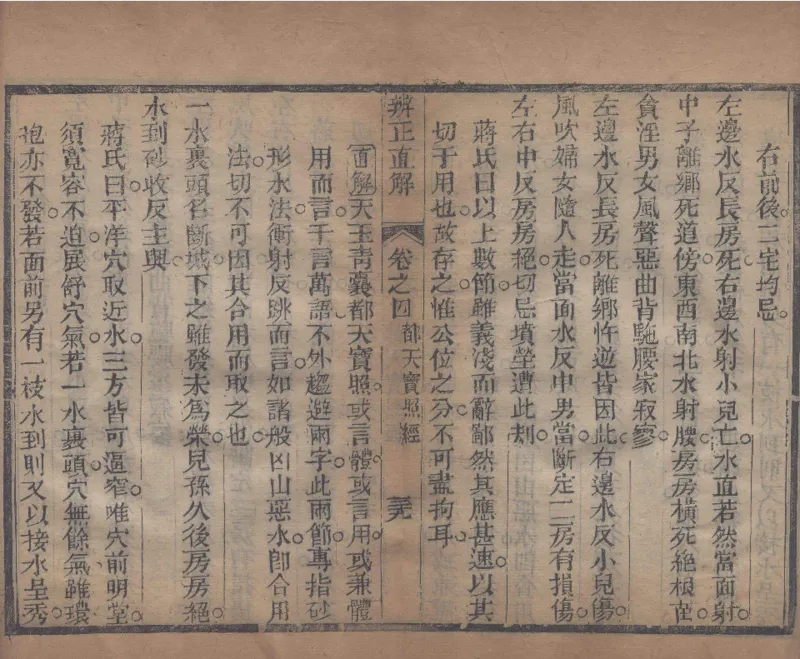 右前後二宅均忌
左邊水反長房死右邊水射小兒亡水直若然當面射
中子離鄉死道傍東西南北水射腰房房橫死絕根在
貪淫男女風聲惡曲背駝腰家寂寥
左邊水反長房死離鄉忤逆皆因此右邊水反小兒傷
風吹婦女隨人走當面水反中男當斷定二房有損傷
左右中反房房絕切忌墳塋遭此刦
蔣氏曰以上數節雖義淺而辭鄙然其應甚速以其
切于用也故存之惟公位之分不可盡拘耳
辨正直解 卷之四 都天寶照經
直解天玉青囊都天寶照或言體或言用或兼體
用而言千言萬語不外趨避兩字此兩節專指砂
形水法衝射反跳而言如諸般凶山惡水卽合用
法切不可因其合用而取之也
一水裹頭名斷城下之雖發未爲榮兒孫久後房房絕
水到砂收反主興
蔣氏曰平洋穴取近水三方皆可逼窄唯穴前明堂
須寬容不迫展舒穴氣若一水裹頭穴無餘氣雖環
抱亦不發若面前另有一枝水到則又以接水呈秀